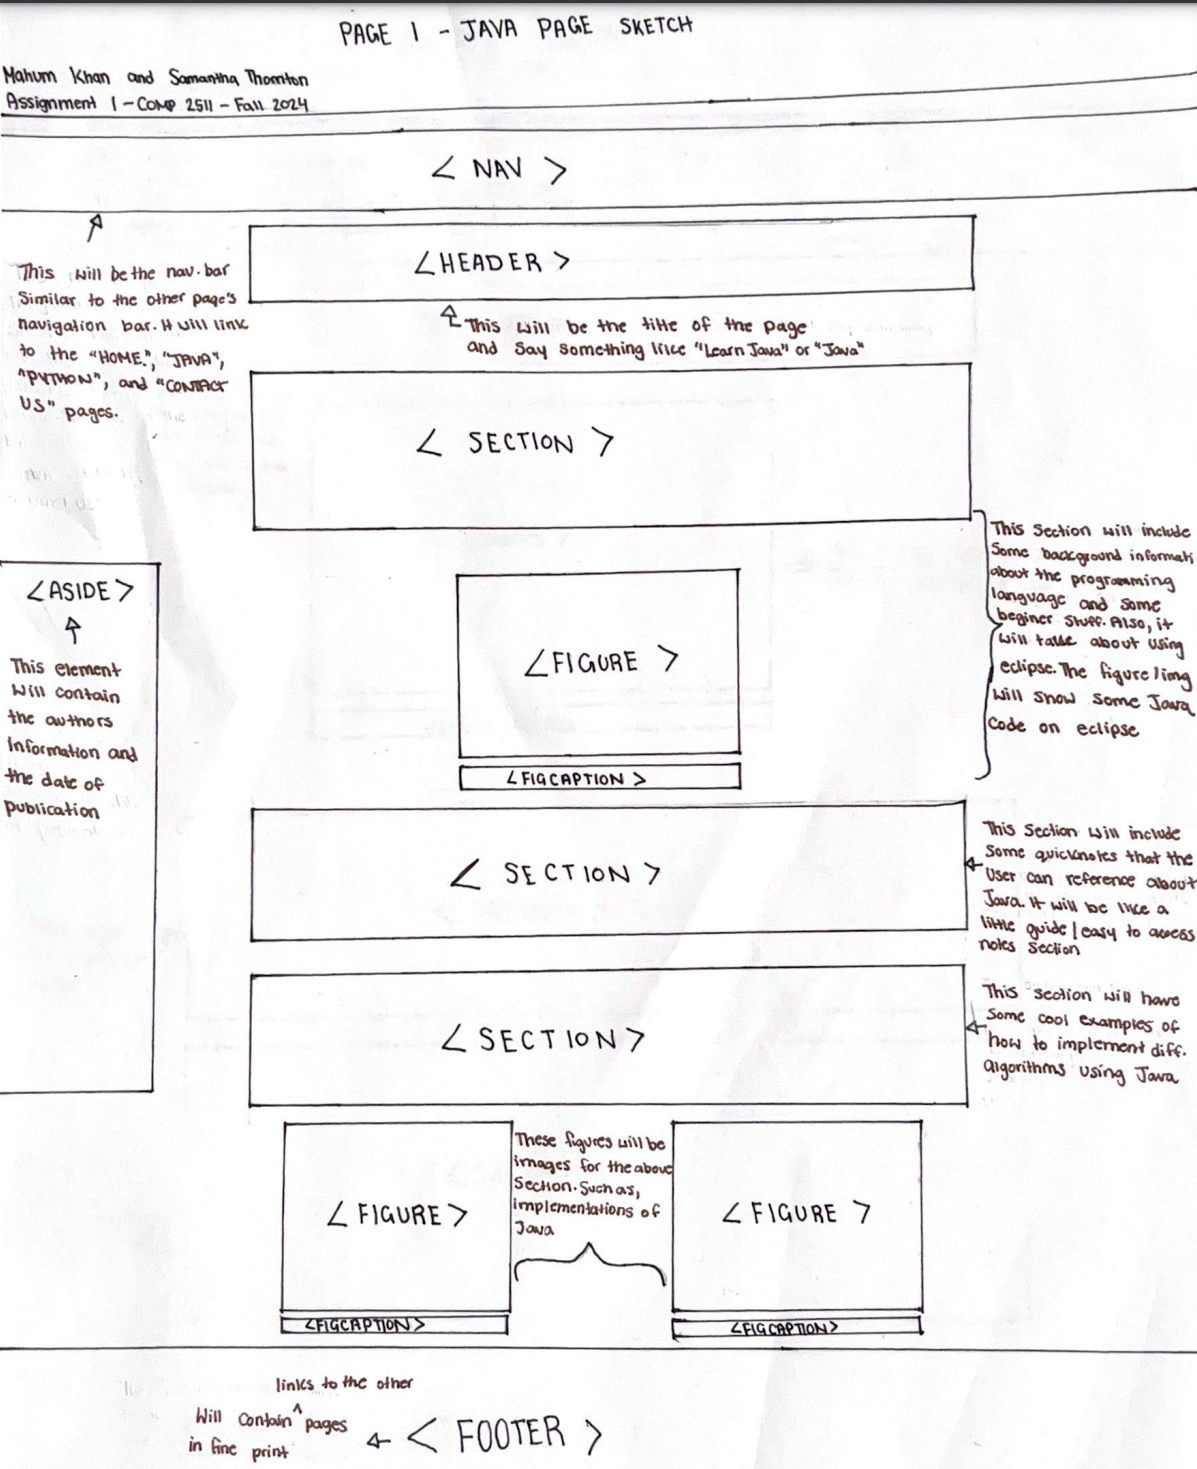 PAGE 1 - JAVA PAGE SKETCH
Mahum Khan and Samantha Thornton
Assignment 1 - COMP 2511 - Fall 2024
< NAV >
This will be the nav. bar
Similar to the other page's
navigation bar. It will link
to the "HOME", "JAVA",
"PYTHON", and "CONTACT
US" pages.
<HEADER>
This will be the title of the page
and say something like "Learn Java" or "Java"
< SECTION >
This Section will include
Some background informati
about the programming
language and some
beginer stuff. Also, it
will talk about using
eclipse. The figure/img
will show some Java
code on eclipse
<ASIDE>
This element
will contain
the authors
information and
the date of
publication
<FIGURE >
<FIGCAPTION >
< SECTION >
This Section will include
Some quicknotes that the
User can reference about
Java. It will be like a
little guide/easy to access
notes section
< SECTION >
This section will have
some cool examples of
how to implement diff.
algorithms using Java
< FIGURE >
<FIGCAPTION>
These figures will be
images for the above
Section. Such as,
implementations of
Java
< FIGURE >
<FIGCAPTION>
links to the other
Will contain ^ pages
in fine print
< FOOTER >